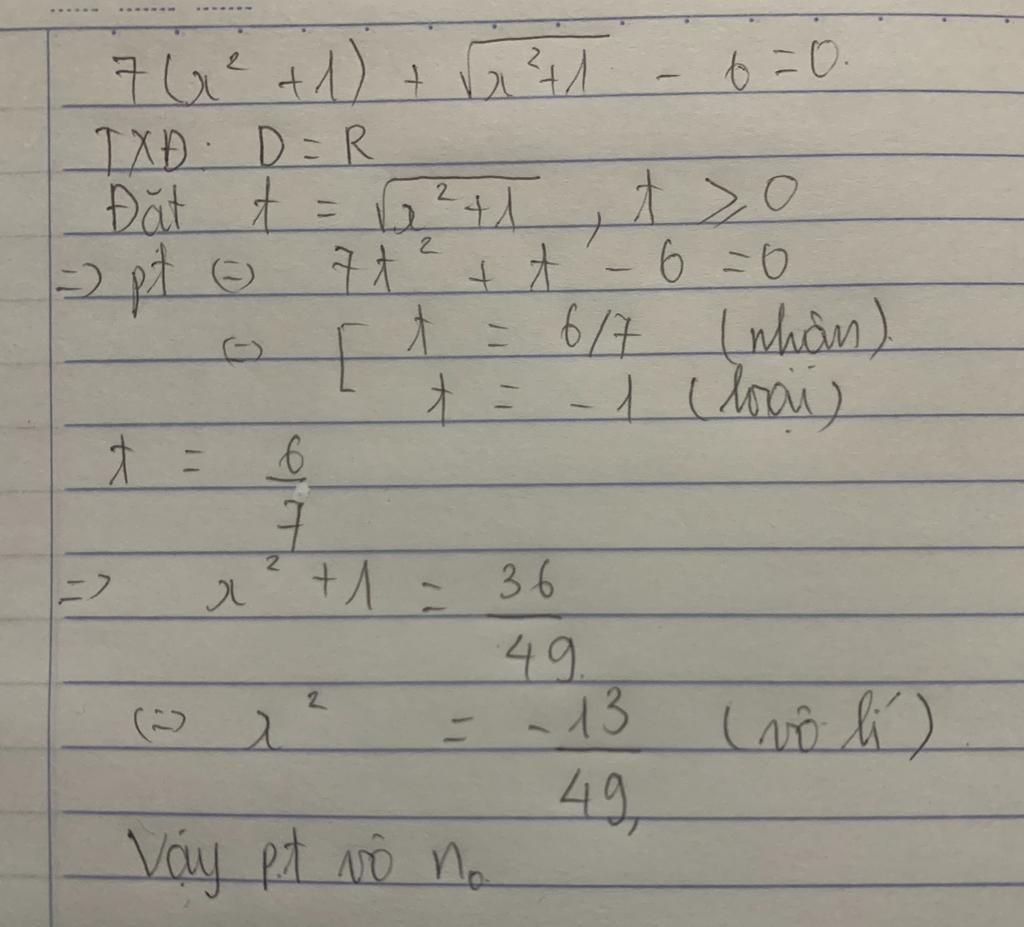 7(x² + 1) + √(x²+1) - 6 = 0.
TXĐ: D = R
Đặt t = √(x²+1), t ⩾ 0
=> pt (=) 7t² + t - 6 = 0
(=) [ t = 6/7 (nhận).
t = -1 (loại)
t = 6/7
=> x² + 1 = 36/49.
(=) x² = -13/49, (vô lí).
Vậy pt vô n₀